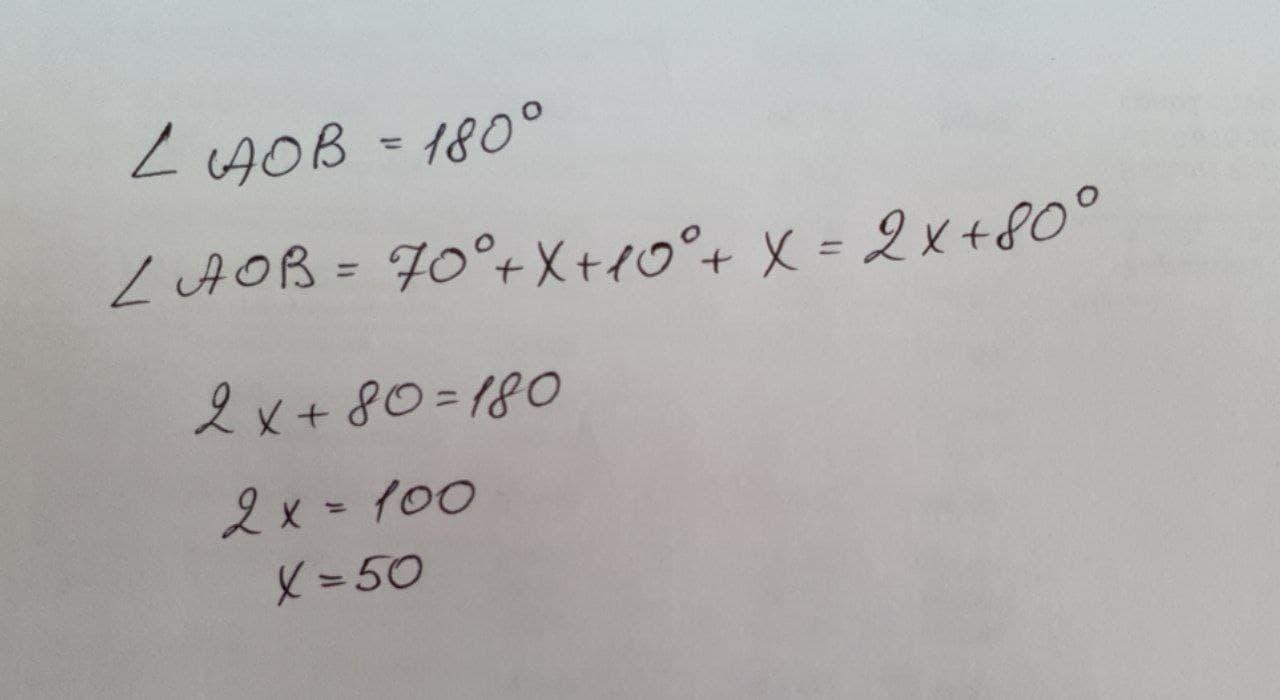 ∠ AOB = 180°
∠ AOB = 70° + x + 10° + x = 2x + 80°
2x + 80 = 180
2x = 100
x = 50